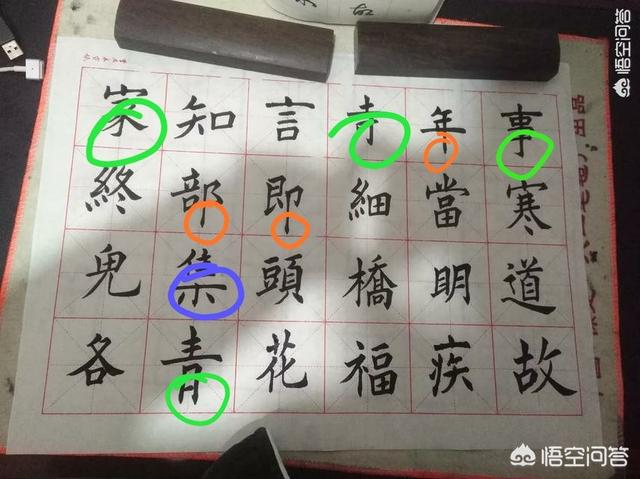 悟空问答
事寒道故
年當明疾
寺細橋福
言即頭花
知部集青
家終兒各
悟空问答